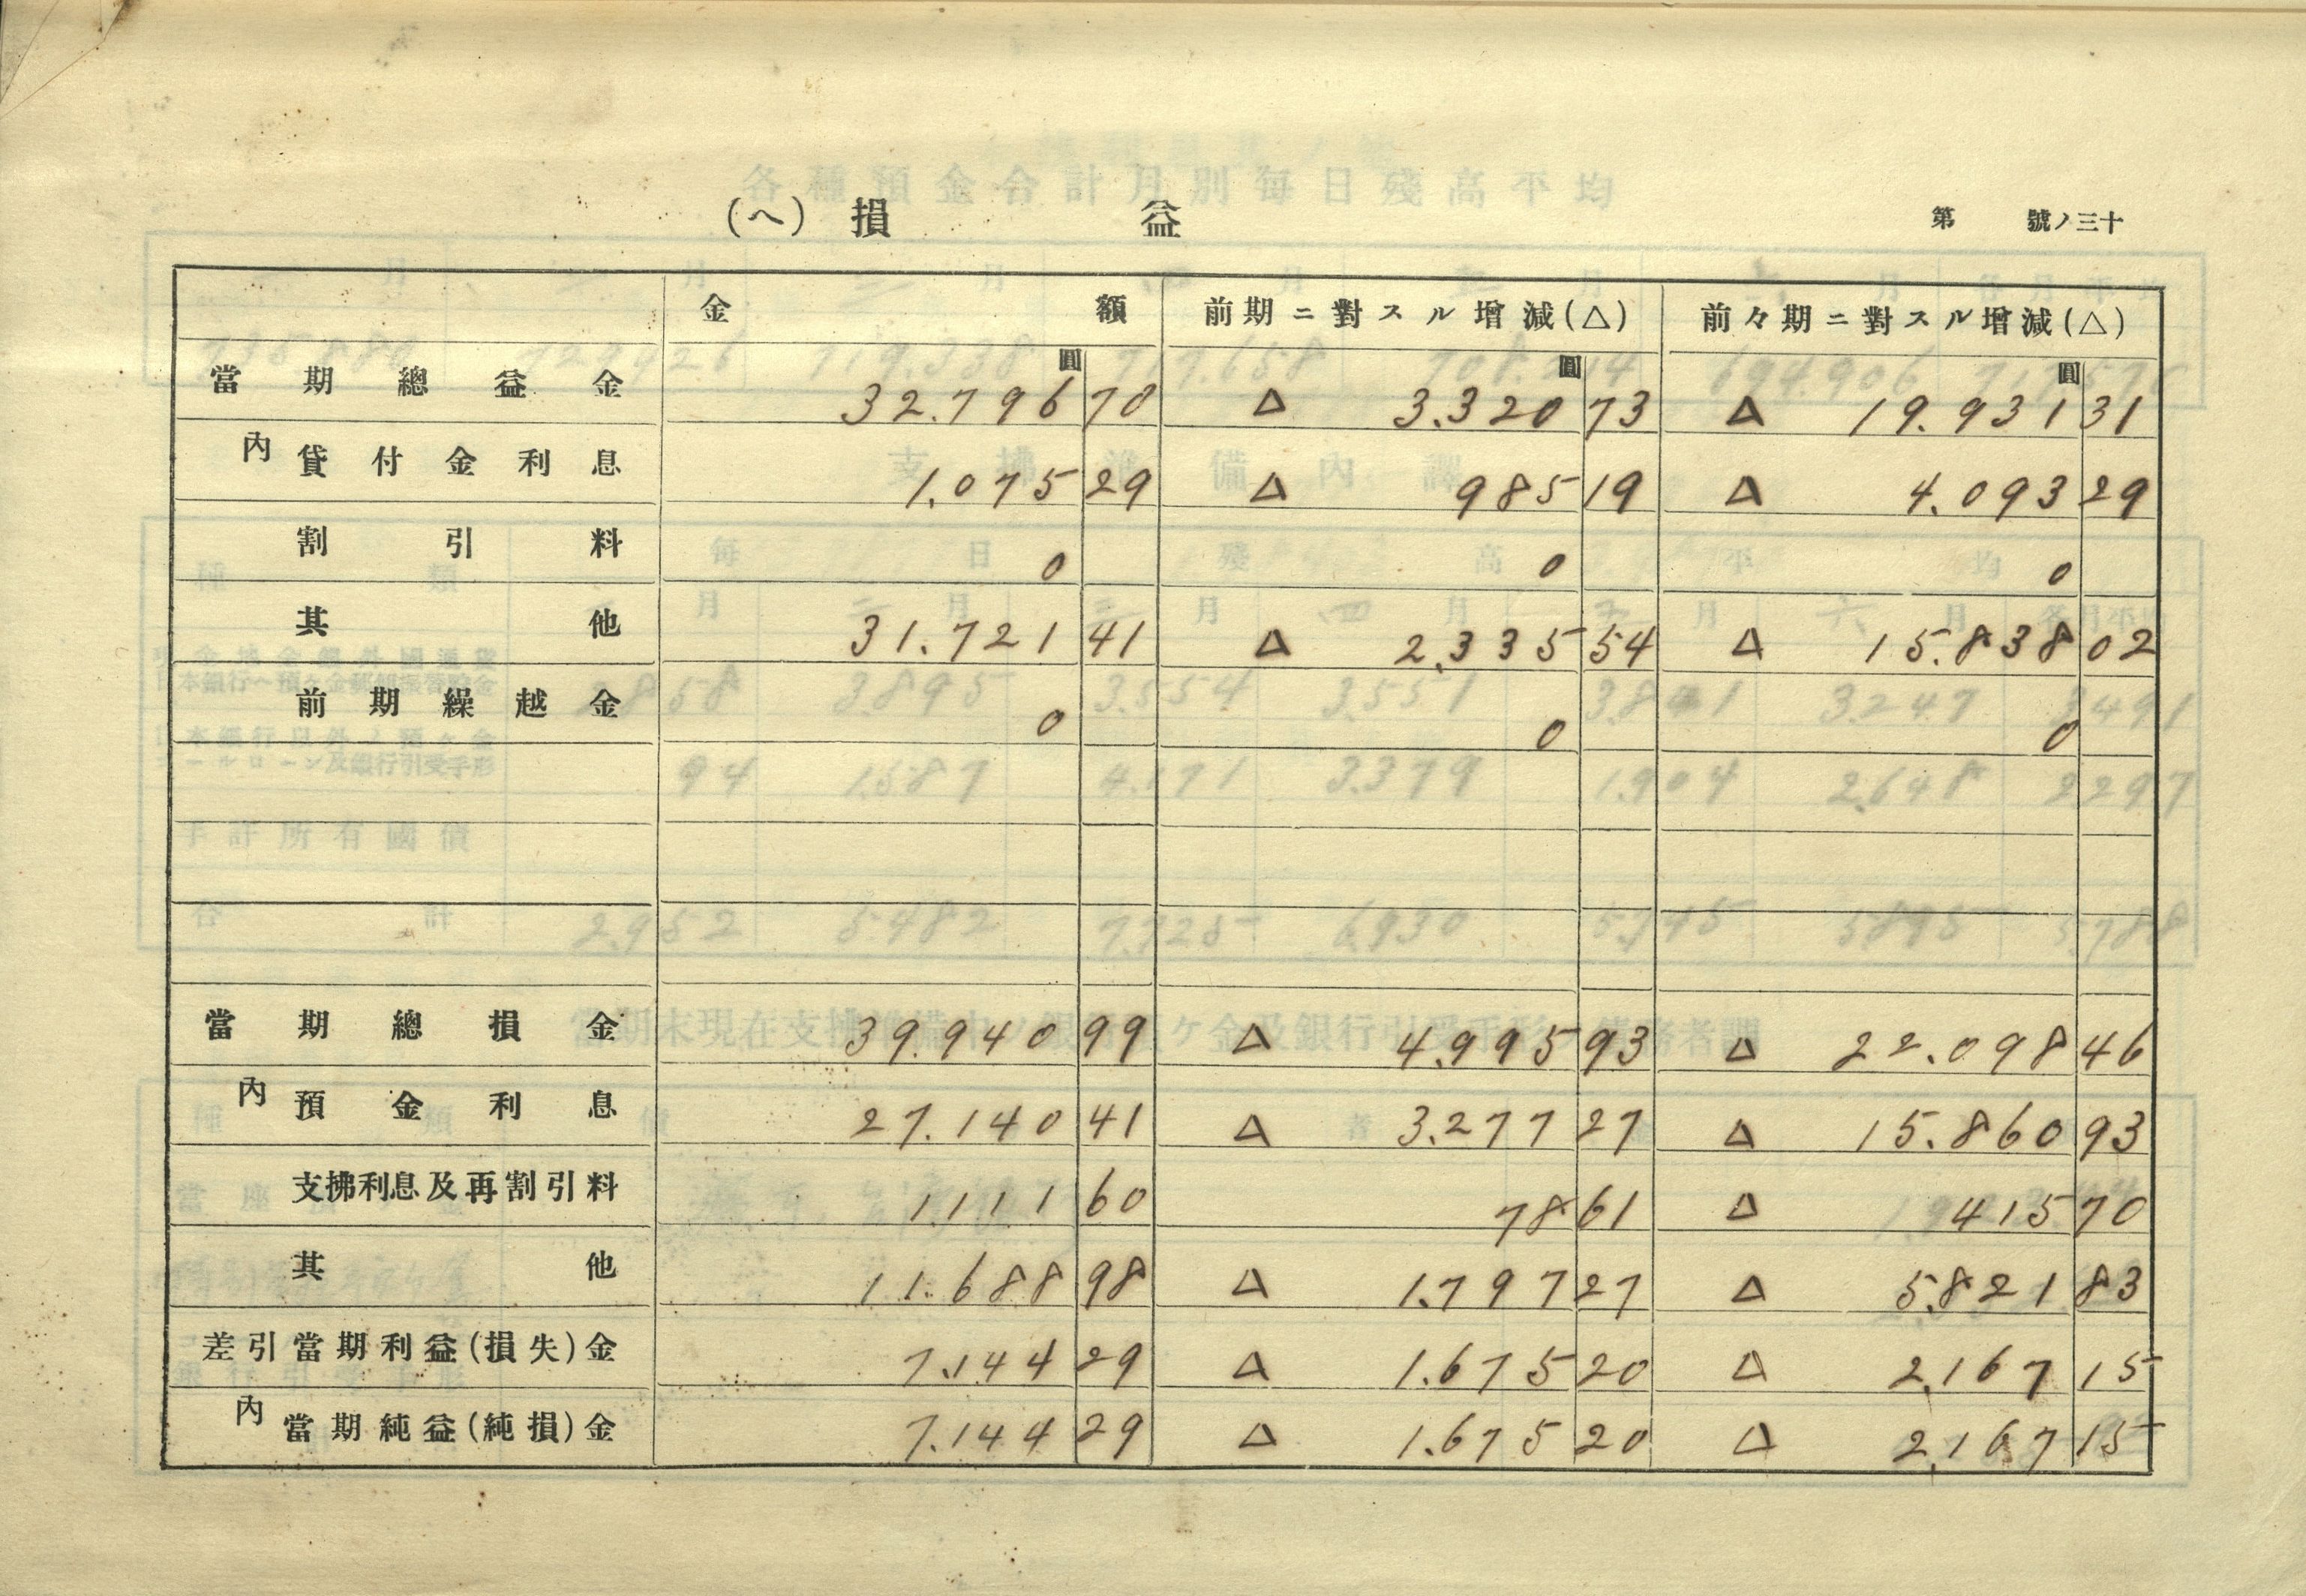 (ヘ) 損 益
第 號ノ三十
金 額 前期ニ對スル增減(△) 前々期ニ對スル增減(△)
圓 圓 圓
當期總益金 32.796 70 △ 3.320 73 △ 19.931 31
內 貸付金利息 1.075 29 △ 985 19 △ 4.093 29
割引料 0 0 0
其他 31.721 41 △ 2.335 54 △ 15.838 02
前期繰越金 0 0 0
當期總損金 39.940 99 △ 4.995 93 △ 22.098 46
內 預金利息 27.140 41 △ 3.277 27 △ 15.860 93
支拂利息及再割引料 1.111 60 78 61 △ 415 70
其他 11.688 98 △ 1.797 27 △ 5.821 83
差引當期利益(損失)金 7.144 29 △ 1.675 20 △ 2.167 15
內 當期純益(純損)金 7.144 29 △ 1.675 20 △ 2.167 15